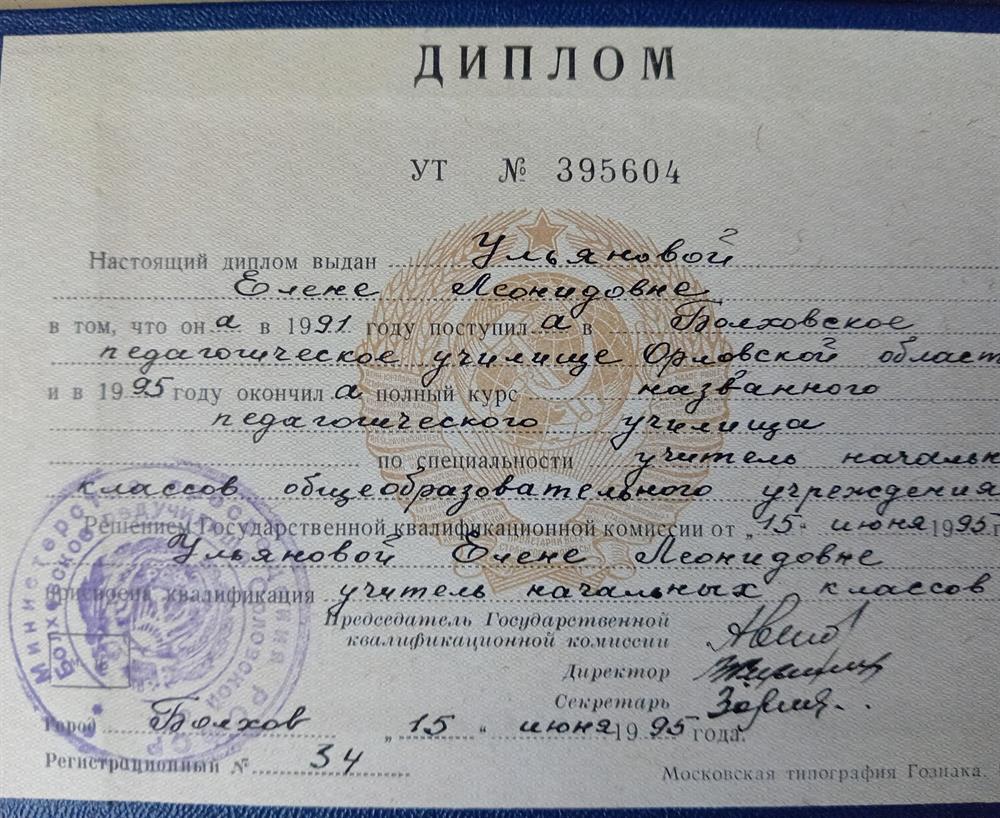 ДИПЛОМ
УТ № 395604
Настоящий диплом выдан Ульяновой
Елене Леонидовне
в том, что он а в 1991 году поступил а в Болховское
педагогическое училище Орловской област
и в 1995 году окончил а полный курс названного
педагогического училища
по специальности учитель началь
классов общеобразовательного учреждения
Решением Государственной квалификационной комиссии от „15" июня 1995 г
Ульяновой Елене Леонидовне
присвоена квалификация учитель начальных классов
Председатель Государственной
квалификационной комиссии
Директор
Секретарь
Город Болхов „15" июня 1995 года.
Регистрационный № 34
Московская типография Гознака.